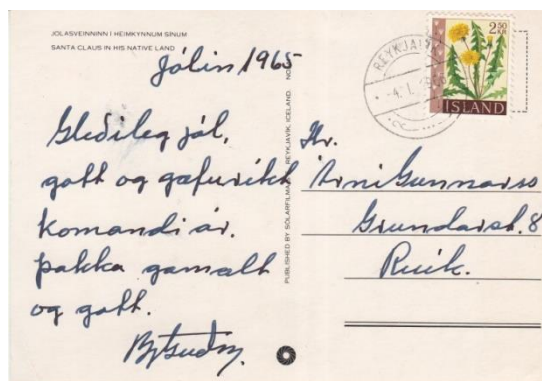 JÓLASVEINNINN Í HEIMKYNNUM SÍNUM
SANTA CLAUS IN HIS NATIVE LAND
Jólin 1965
Gleðileg jól,
gott og gæfuríkt
komandi ár.
þakka gamalt
og gott.
PUBLISHED BY SOLARFILMA REYKJAVÍK, ICELAND. NO
REYKJAVÍK
-4. 1.
2.50
KR
ÍSLAND
Hr.
Árni Gunnarsso
Grundarst. 8
Rvík.